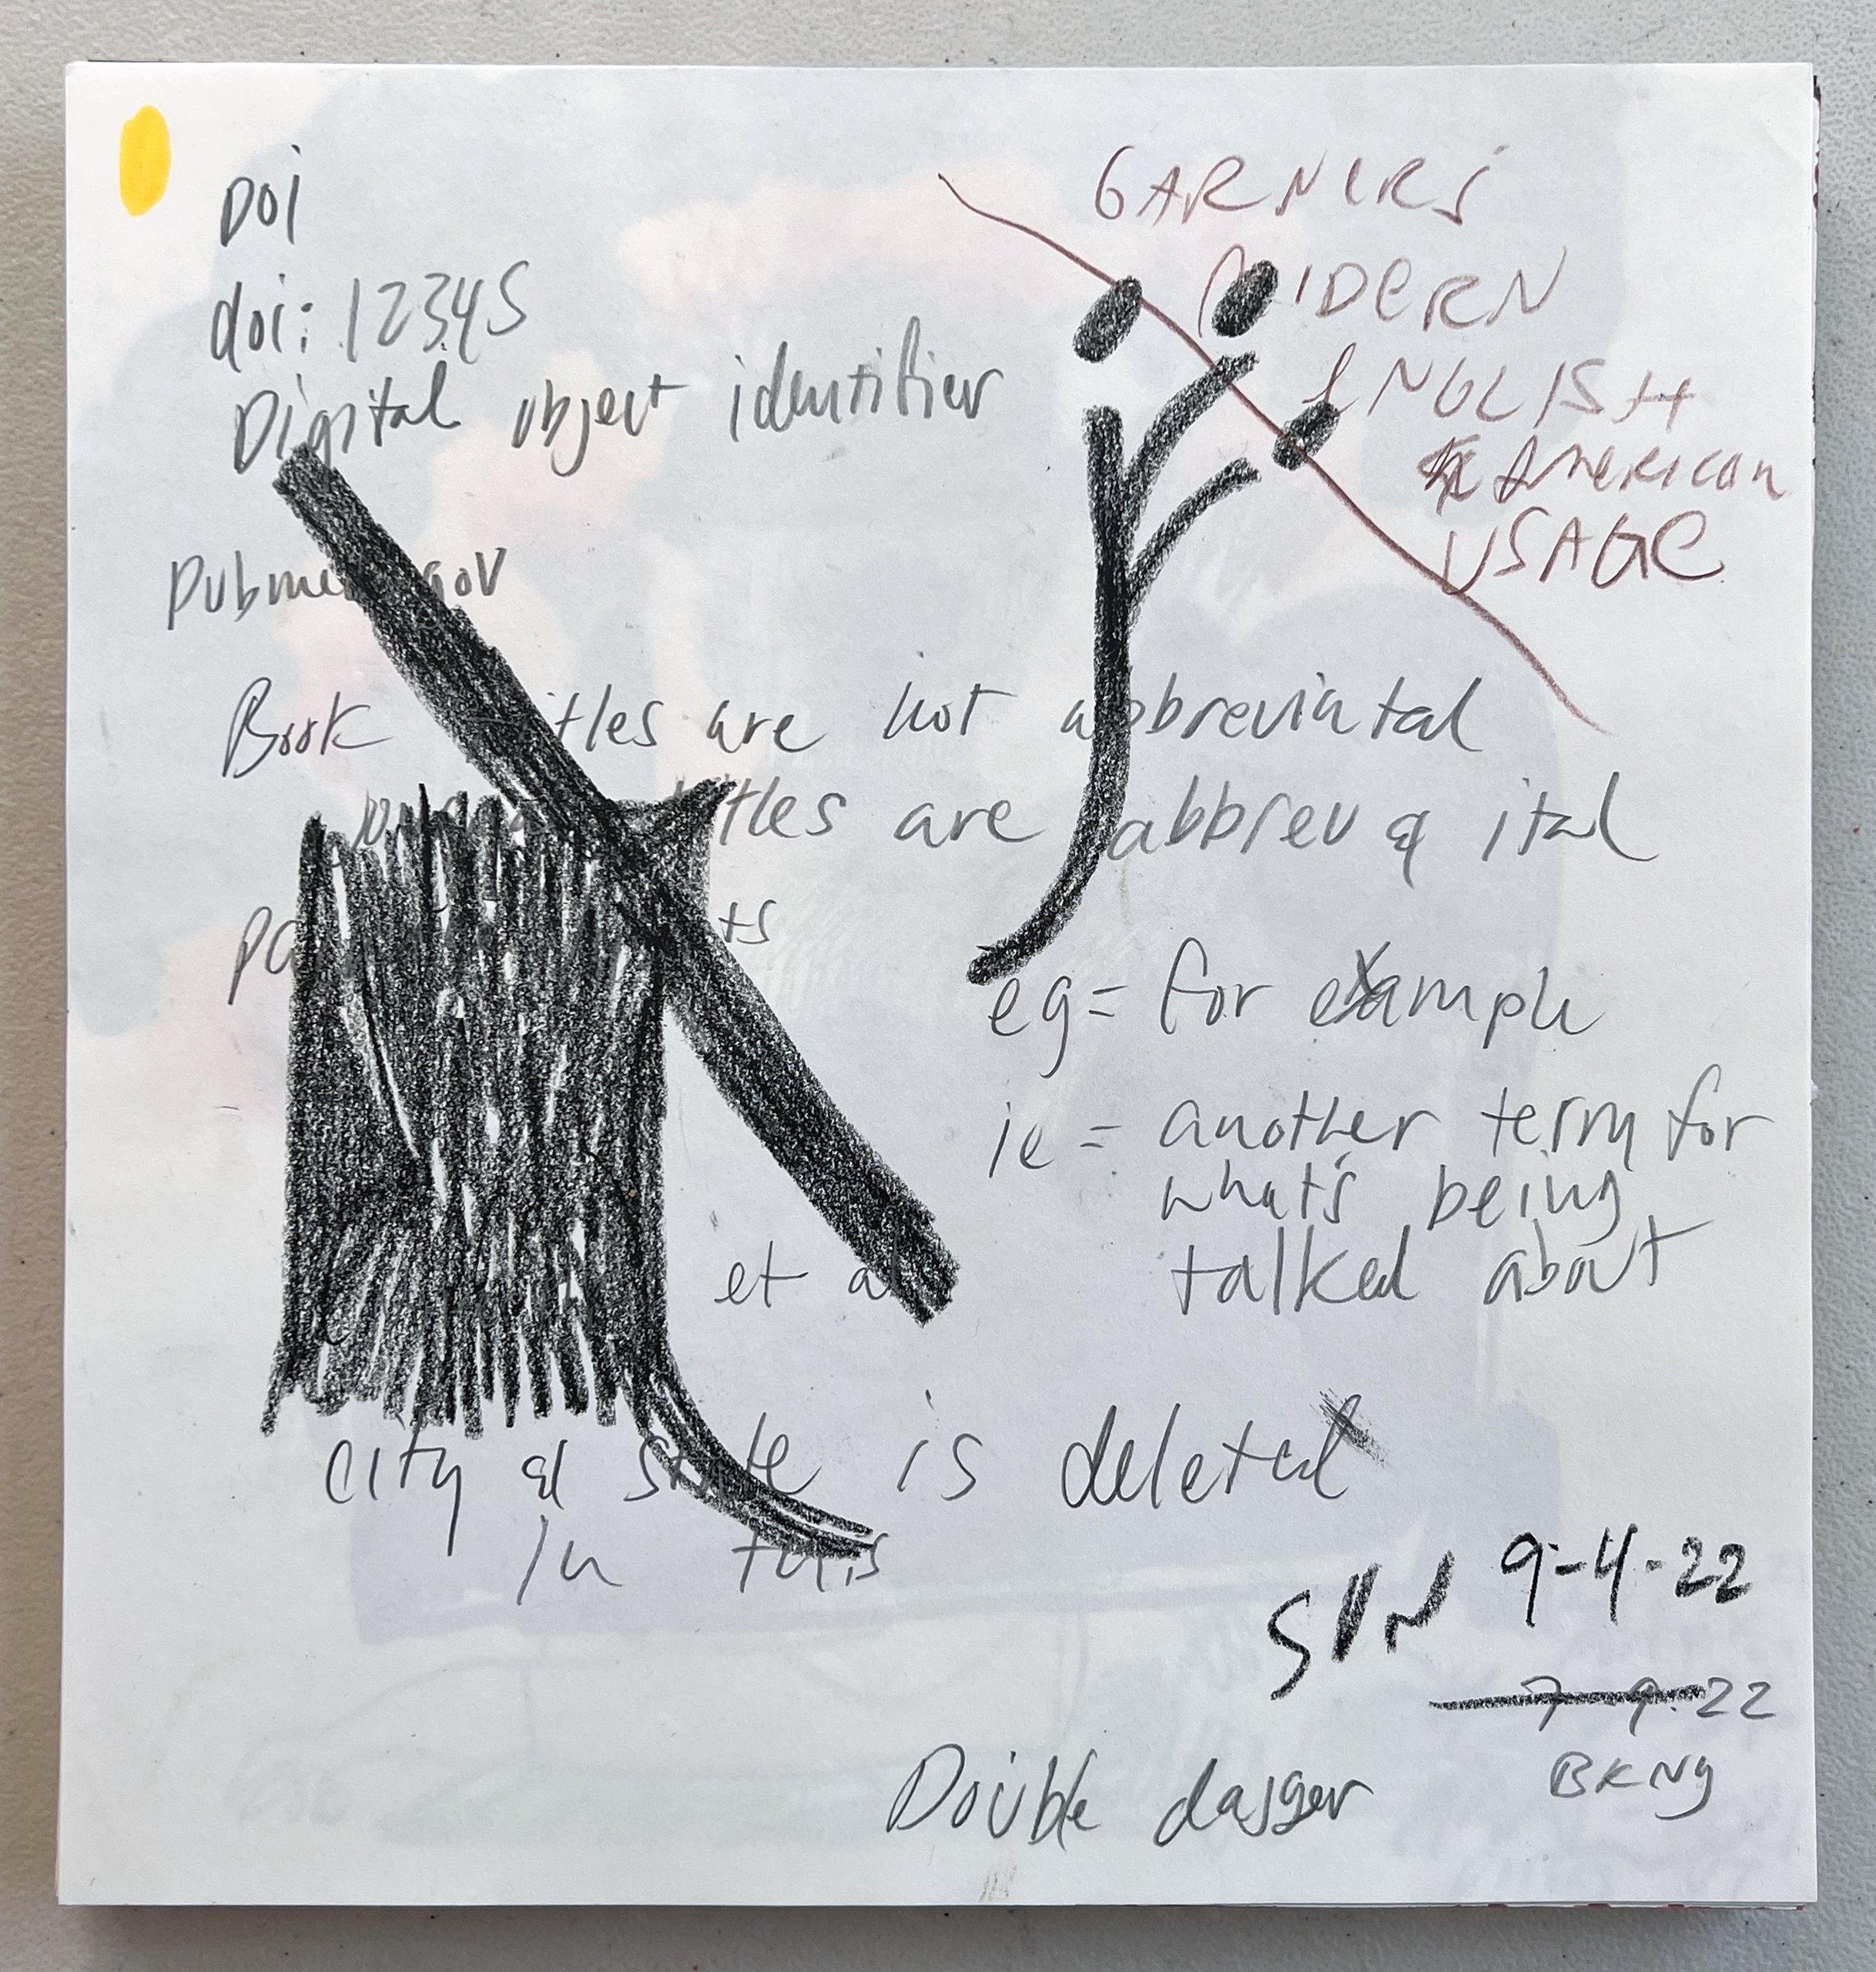 DOI
doi: 12345
Digital object identifier
GARNERS
MODERN
ENGLISH
American
USAGE
Book titles are not abbreviated
titles are abbrev & ital
eg = for example
ie = another term for
what's being
talked about
et al
city & state is deleted
in this
SUN 9-4-22
7-9-22
BKNY
Double dagger